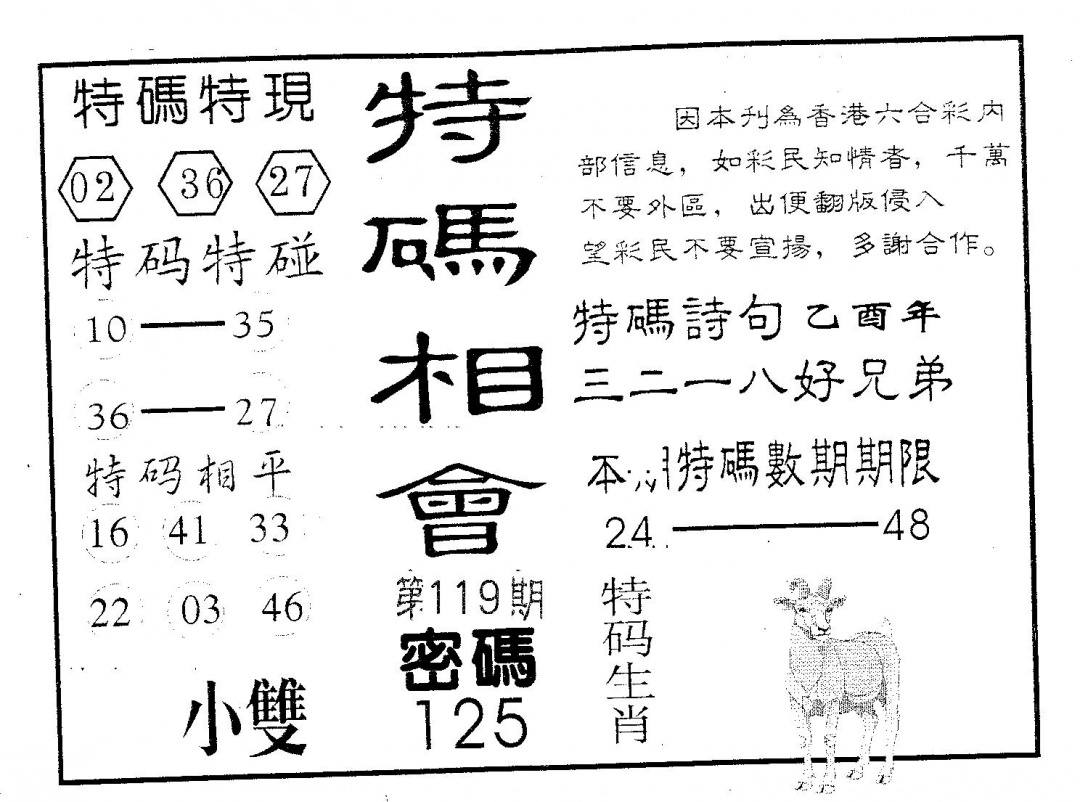 特碼特現
02 36 27
特码特碰
10 — 35
36 — 27
特码相平
16 41 33
22 03 46
小雙
特碼相會
第119期
密碼
125
因本刋為香港六合彩内
部信息，如彩民知情者，千萬
不要外區，出便翻版侵入
望彩民不要宣揚，多謝合作。
特碼詩句 乙酉年
三二一八好兄弟
本期特碼數期期限
24 — 48
特码生肖